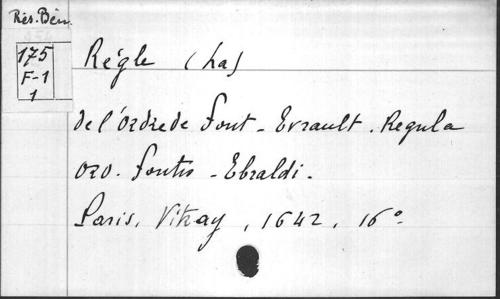 Rés. Bém.
175
F-1
1
Régle (La)
de l'Ordre de Font-Evrault. Regula
ord. Fontis-Ebraldi.
Paris, Vitray, 1642, 16°.